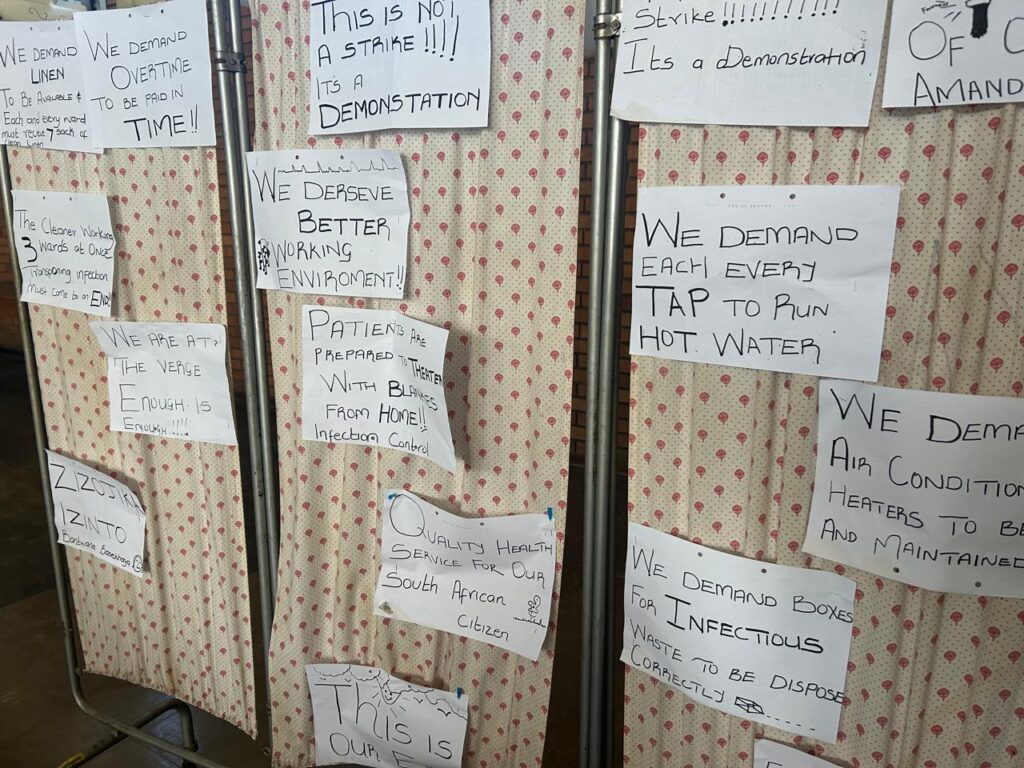 WE DEMAND
LINEN
TO BE AVAILABLE &
Each and every ward
must receive 7 sack of
clean linen
WE DEMAND
OVERTIME
TO BE PAID IN
TIME!!
The Cleaner Working
3 Wards at Once
Transporing infection
Must come to an END!
WE ARE AT
THE VERGE
ENOUGH IS
ENOUGH!!!!
ZIZOJIKA
IZINTO
THIS IS NOT
A STRIKE!!!!
IT'S A
DEMONSTATION
WE DERSEVE
BETTER
WORKING
ENVIROMENT!!
PATIENTS ARE
PREPARED TO THEATER
WITH BLANKES
FROM HOME!!
Infection Control
QUALITY HEALTH
SERVICE FOR OUR
South African
Citizen
THIS IS
OUR
Strike!!!!!!!!!!!
Its a Demonstration
OF
AMAND
WE DEMAND
EACH EVERY
TAP TO RUN
HOT WATER
WE DEMA
AIR CONDITION
HEATERS TO BE
AND MAINTAINED
WE DEMAND BOXES
FOR INFECTIOUS
WASTE TO BE DISPOSE
CORRECTLY